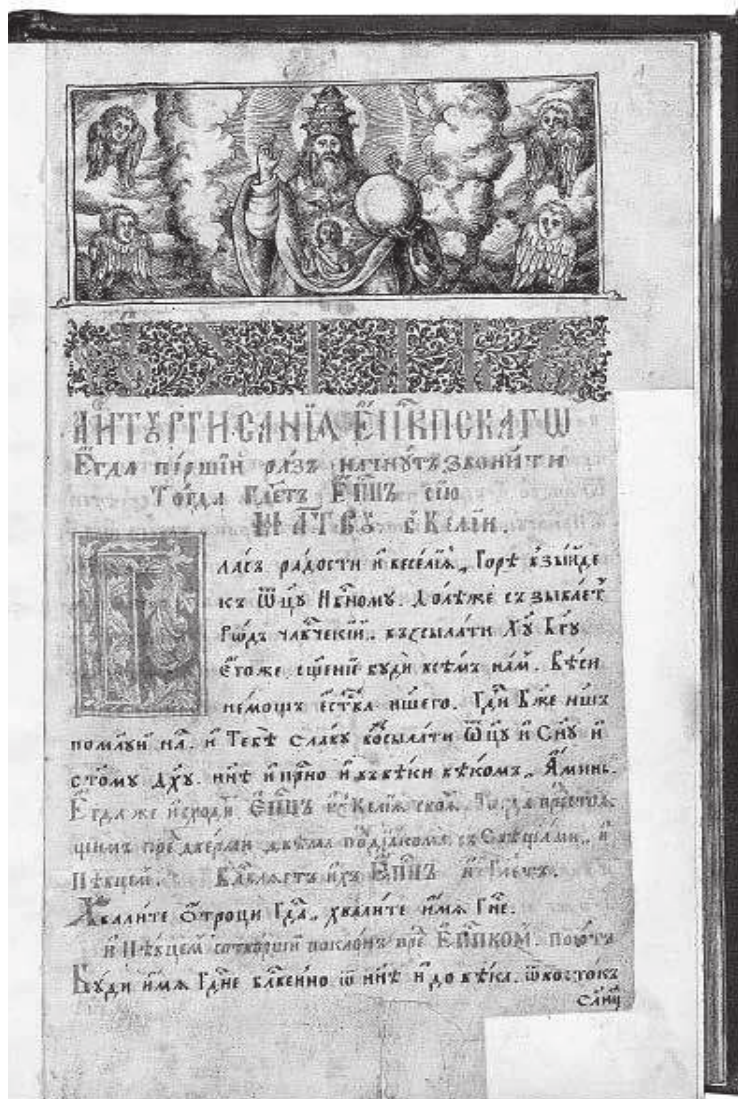 ЛИТУРГИСАНІѦ ЕП҃КПСКАГѠ
Егда першїй разъ начнутъ звонити
Тогда гл҃етъ Еп҃пъ сїю
М҃ЛТВУ в Келїи.
Гласъ радости и веселїѧ, Горѣ взыйде
къ Ѿцу Нб҃ному. Долѣже съзываетъ
Рѡдъ чл҃вческїй, въсылати Х҃у Бг҃у
Егоже сщ҃енїе буди всѣмъ намъ. Вѣси
немощъ еств҃а нш҃его. Гд҃и Бж҃е нш҃ъ
помл҃уй на. и Тебѣ славу возсылати Ѿцу и Сн҃у и
ст҃ому Дх҃у. нн҃ѣ и пр҃но и въ вѣки вѣкомъ, Аминь.
Егда же исходи Еп҃пъ Келїѧ своѧ. Тогда
пре дверми двѣма подїакома съ Свѣщами, и
Пѣвцем. Бл҃вляетъ ихъ Еп҃пъ и гл҃етъ.
Хвалите Отроци Гд҃а, хвалите имѧ Гн҃е.
и Пѣвцем сотворши поклонъ пре Еп҃пком. поютъ
Буди имѧ Гд҃не бл҃венно ѿ нн҃ѣ и до вѣка. ѿ востокъ
слн҃ц